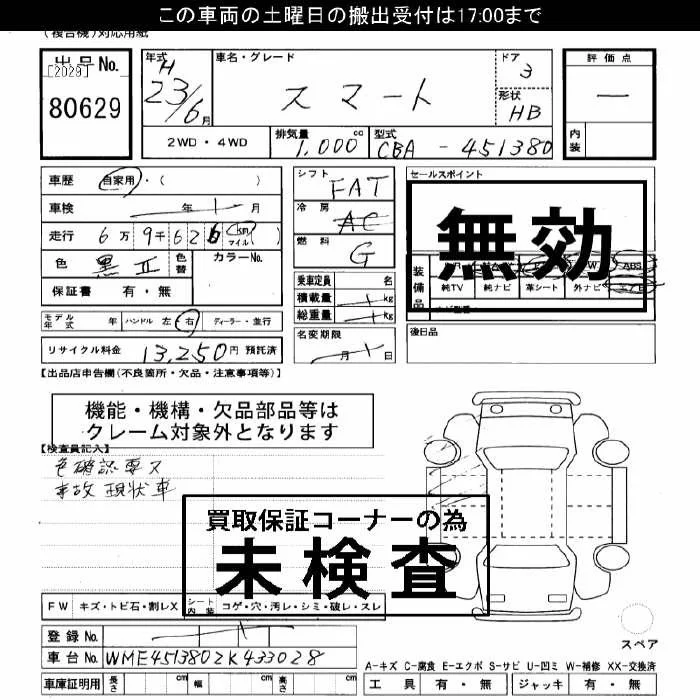 この車両の土曜日の搬出受付は17:00まで
(複合機)対応用紙
出品No.
[2029]
80629
年式
H
23/6月
車名・グレード
スマート
ドア
3
形状
HB
評価点
—
内装
2WD・4WD
排気量
1,000 cc
型式
CBA - 451380
車歴 自家用・( )
車検 年 月
走行 6万9千626 km マイル ( )
色 黒II 色替 カラーNo.
保証書 有・無
モデル年式 年 ハンドル 左 右 ディーラー・並行
リサイクル料金 13,250円 預託済
シフト
FAT
冷房
AC
燃料
G
乗車定員 名
積載量 kg
総重量 kg
名変期限
月 日
セールスポイント
無効
装備品
ABS
純TV 純ナビ 革シート 外ナビ
後日品
【出品店申告欄(不良箇所・欠品・注意事項等)】
機能・機構・欠品部品等は
クレーム対象外となります
【検査員記入】
色確認要ス
事故現状車
買取保証コーナーの為
未検査
FW キズ・トビ石・割レX シート内装 コゲ・穴・汚レ・シミ・破レ・スレ
登録No.
車台No. WME4513802K433028
車庫証明用 長さ cm 幅 cm 高さ cm
スペア
A-キズ C-腐食 E-エクボ S-サビ U-凹ミ W-補修 XX-交換済
工具 有・無 ジャッキ 有・無